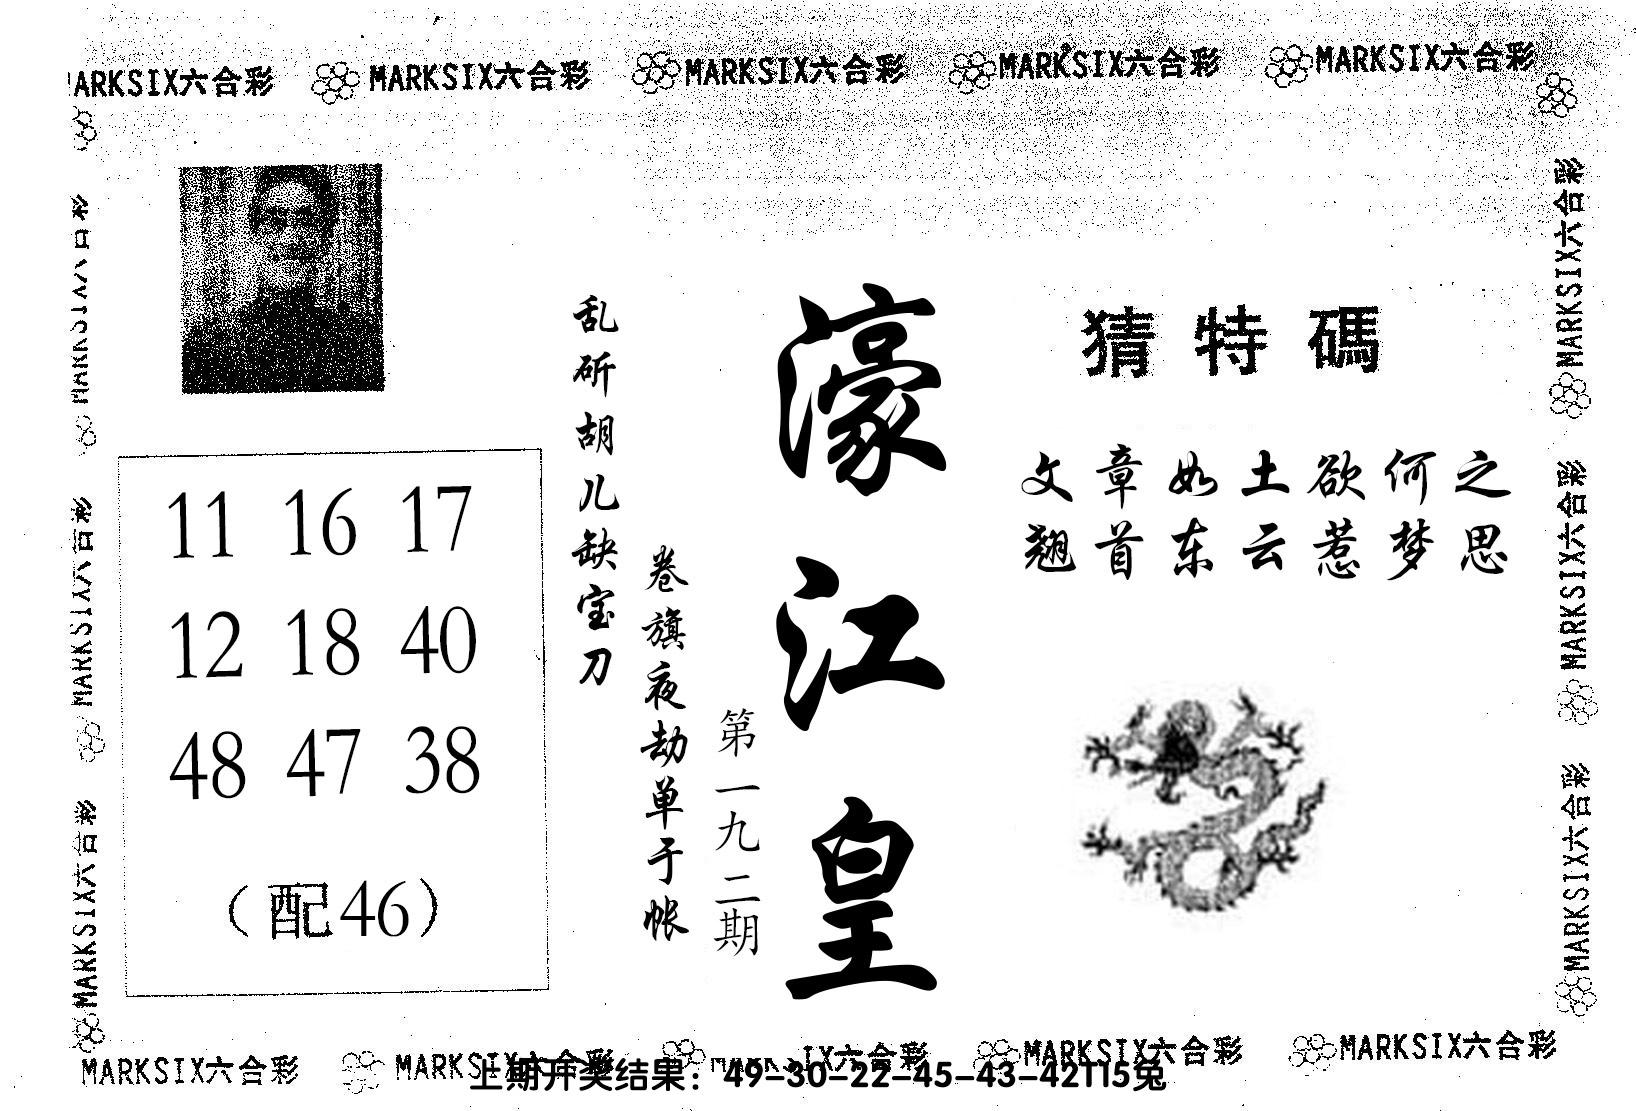 MARKSIX六合彩 MARKSIX六合彩 MARKSIX六合彩 MARKSIX六合彩
猜特碼
文章如土欲何之
翘首东云惹梦思
濠江皇
第一九二期
卷旗夜劫单于帐
乱斫胡儿缺宝刀
11 16 17
12 18 40
48 47 38
（配46）
MARKSIX六合彩
MARKSIX六合彩
MARKSIX六合彩
MARKSIX六合彩
MARKSIX六合彩
MARKSIX六合彩 MARKSIX六合彩 MARKSIX六合彩 MARKSIX六合彩
上期开奖结果：49-30-22-45-43-42T15兔